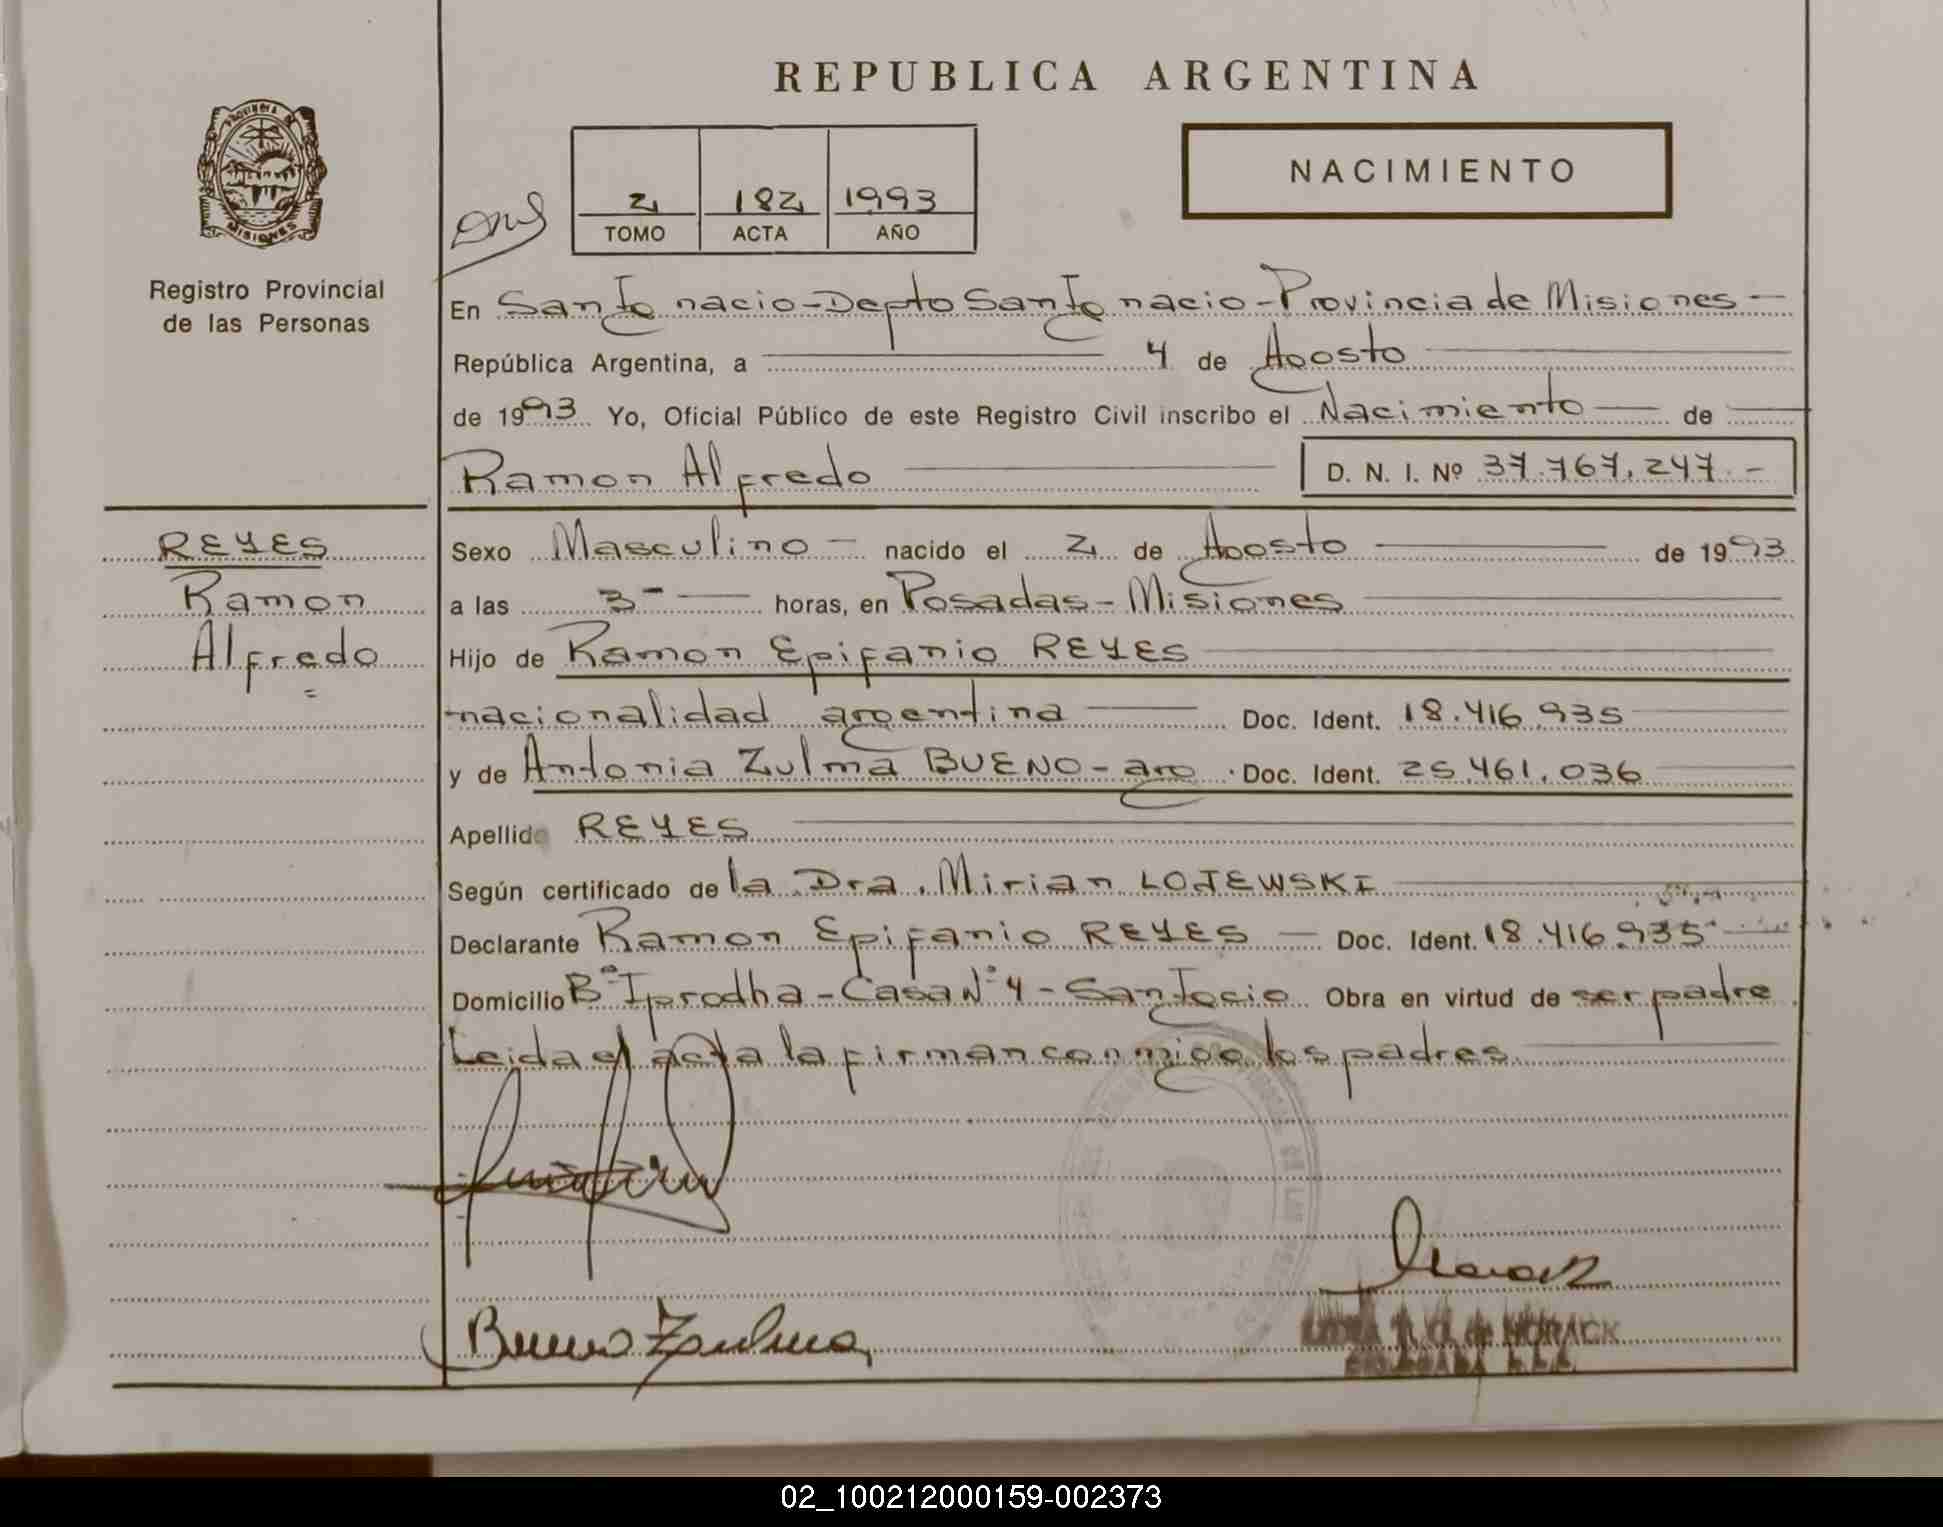 REPUBLICA ARGENTINA
NACIMIENTO
2 182 1993
TOMO ACTA AÑO
PROVINCIA DE
MISIONES
Registro Provincial
de las Personas
En San Ignacio - Depto San Ignacio - Provincia de Misiones -
República Argentina, a 4 de Agosto
de 1993 Yo, Oficial Público de este Registro Civil inscribo el Nacimiento — de
Ramon Alfredo D. N. I. Nº 37.767.247.-
REYES
Ramon
Alfredo
Sexo Masculino - nacido el 2 de Agosto de 1993
a las 3 - horas, en Posadas - Misiones
Hijo de Ramon Epifanio REYES
nacionalidad argentina Doc. Ident. 18.416.935
y de Antonia Zulma BUENO - arg. Doc. Ident. 25.461.036
Apellido REYES
Según certificado de la Dra. Mirian LOJEWSKI
Declarante Ramon Epifanio REYES — Doc. Ident. 18.416.935
Domicilio Bº Iprodha - Casa Nº 4 - San Igcio Obra en virtud de ser padre
Leida el acta la firman conmigo los padres
Bueno Zulma
de HORACK
02_100212000159-002373